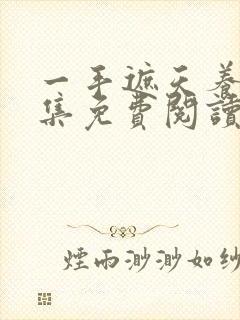 一手遮天養
集免費閱讀
煙雨渺渺如紗